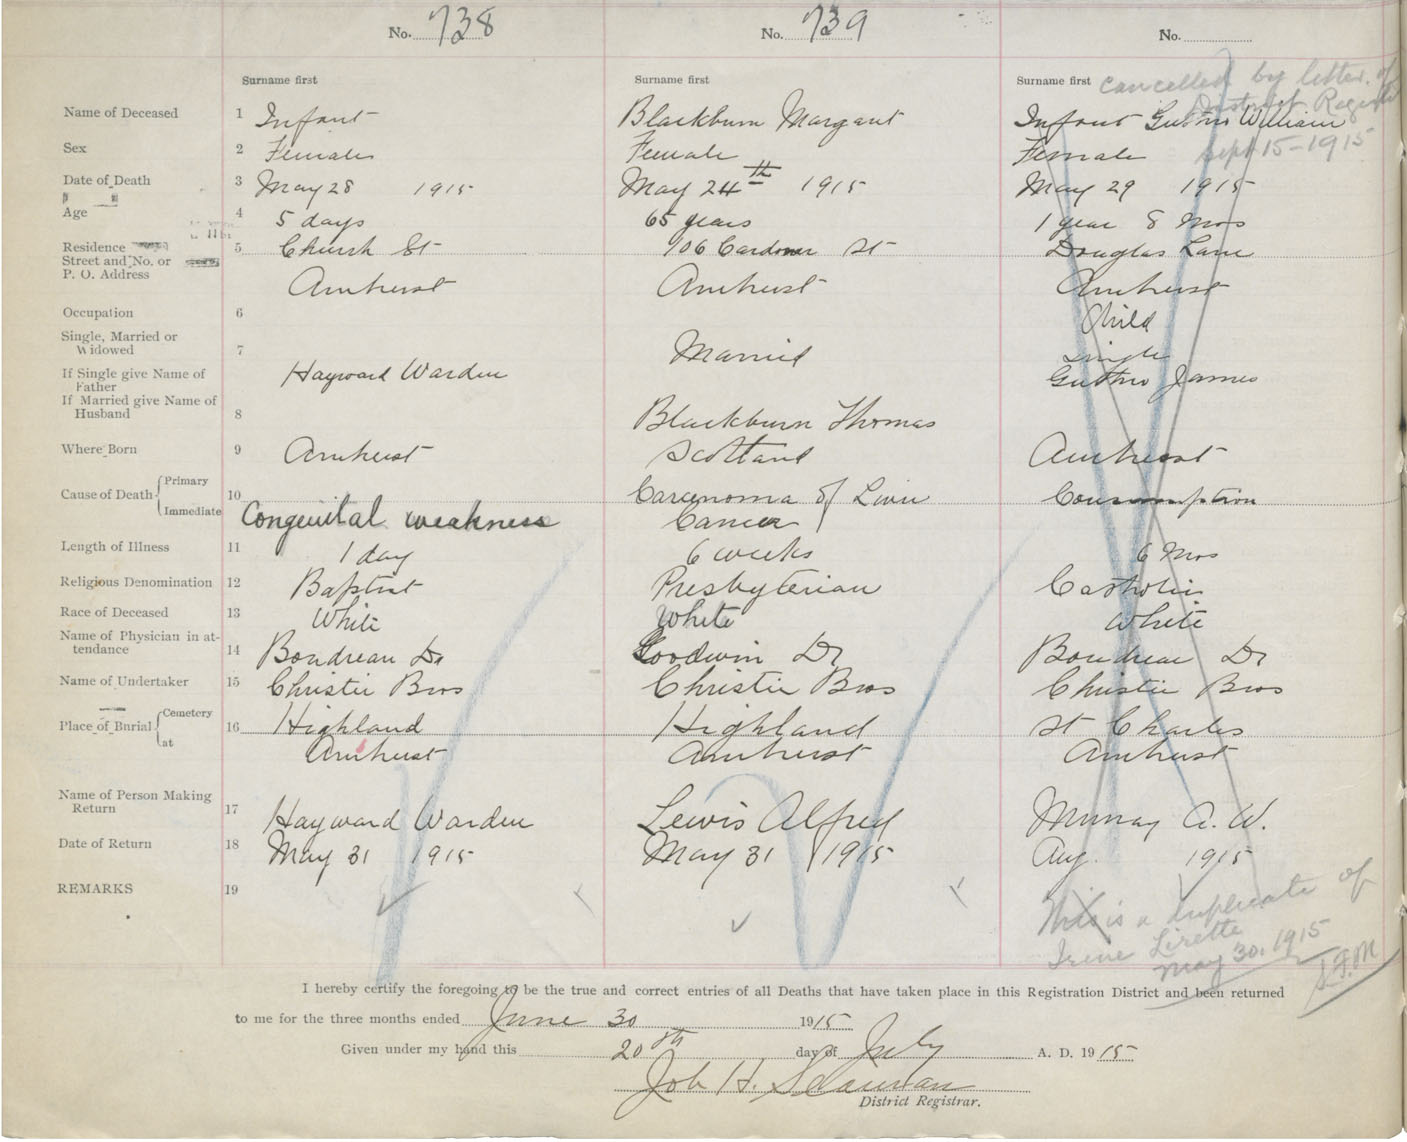 No. 738 No. 739 No.
Surname first Surname first Surname first cancelled by letter of
District Registrar
Name of Deceased 1 Infant Blackburn Margaret Infant William
Sept 15-1915
Sex 2 Female Female Female
Date of Death 3 May 28 1915 May 24th 1915 May 29 1915
Age 4 5 days 65 years 1 year 8 Mos
Residence 5 Church St 106 St Douglas Lane
Street and No. or
P. O. Address Amherst Amherst Amherst
Occupation 6 Child
Single, Married or
Widowed 7 Married Single
If Single give Name of
Father Hayward Warden James
If Married give Name of
Husband 8 Blackburn Thomas
Where Born 9 Amherst Scotland Amherst
Cause of Death Primary 10 Carcinoma of Liver Consumption
Immediate Congenital weakness Cancer
Length of Illness 11 1 day 6 weeks 6 Mos
Religious Denomination 12 Baptist Presbyterian Catholic
Race of Deceased 13 White White White
Name of Physician in at-
tendance 14 Boudreau Dr Goodwin Dr Boudreau Dr
Name of Undertaker 15 Christie Bros Christie Bros Christie Bros
Place of Burial Cemetery 16 Highland Highland St Charles
at Amherst Amherst Amherst
Name of Person Making
Return 17 Hayward Warden Lewis Alfred Murray A. W.
Date of Return 18 May 31 1915 May 31 1915 Aug. 1915
REMARKS 19
This is a duplicate of
Irene Lirette
May 30, 1915
I hereby certify the foregoing to be the true and correct entries of all Deaths that have taken place in this Registration District and been returned
to me for the three months ended June 30 1915
Given under my hand this 20th day of July A. D. 1915
Job H.
District Registrar.